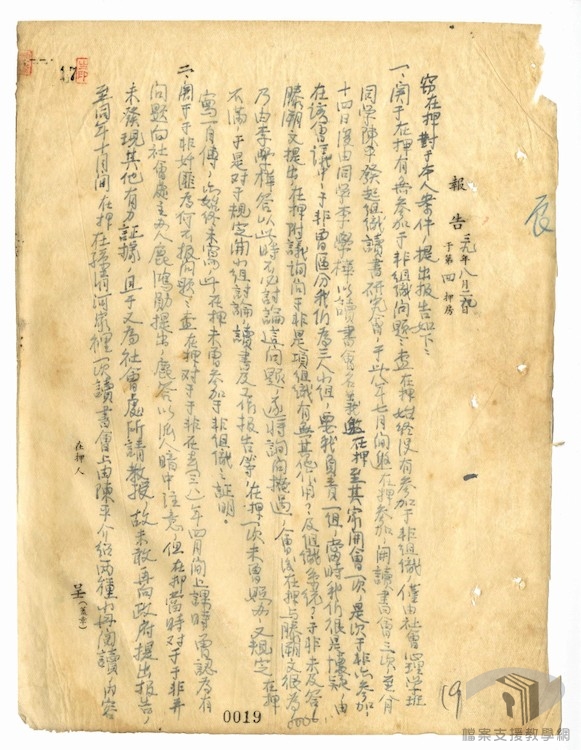 報告 三九年八月二日
于第四押房
竊在押對于本人案件，提出報告如下：
一、关于在押有無參加于非組織問題：查在押始終沒有參加于非組織，僅由社會心理学班
同学陳平發起組織讀書研究會，于卅八年七月间邀在押參加，開讀書會三次，至八月
十四日復由同学李學樺以讀書會名義邀在押至其家開會一次，是次于非亦參加，
在該會議中，于非曾區分我们為三人小组，要我負責一组，當時我们很是懷疑，由
滕朝文提出，在押附議詢问于非是項組織有無其他作用？及組織系統？于非未及答，
乃由李學樺答以此時不応討論這问題，遂将詢问擱過，會後在押与滕朝文很為
不滿，于是对于規定開小组討論讀書及工作报告等，在押一次未曾照办，又規定在押
寫一自傳，亦始終未寫，此在押未曾參加于非組織之証明。
二、関于于非奸匪為何不报问題：查在押对于于非在去（卅八）年四月间上課時曾認為有
问題向社會處主办人鹿鴻勛提出，鹿答以派人暗中注意，但在押當時对于于非并
未發現其他有力証據，且于又為社會處所請教授，故未敢再向政府提出报告，
至同年十月间，在押在孫清河家裡一次讀書會上由陳平介紹两種小册閱讀，内容
在押人
呈（蓋章）
17
19
0019
檔案支援教學網